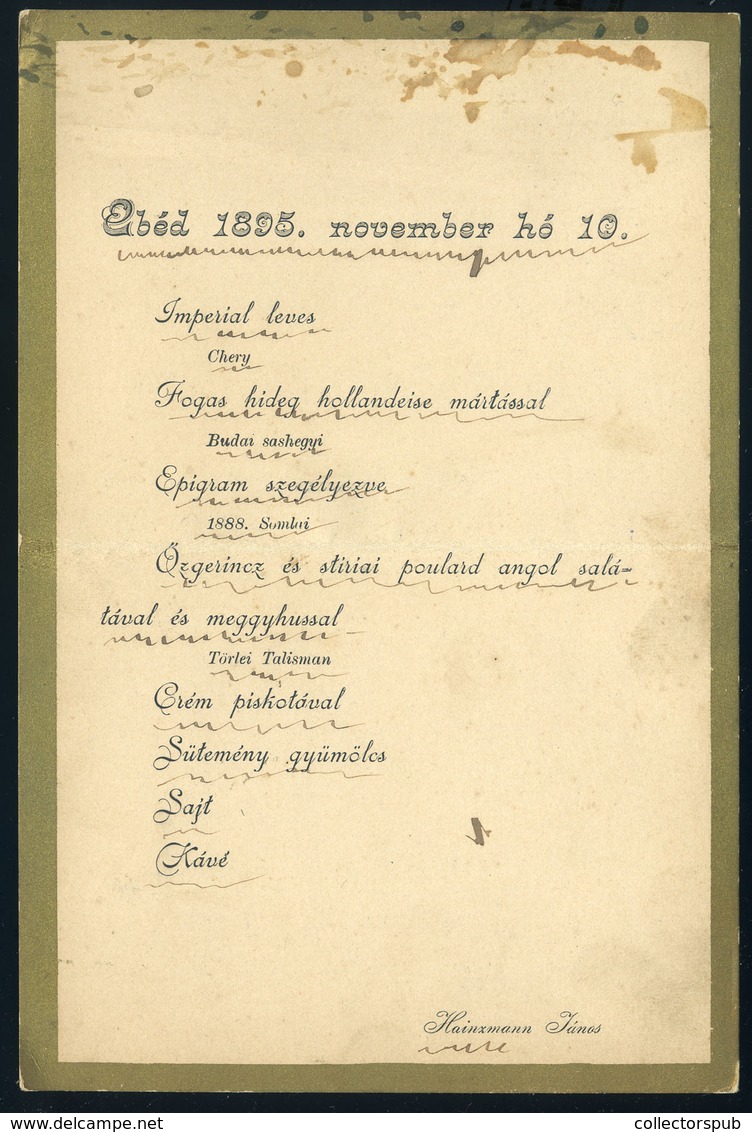 Ebéd 1895. november hó 10.
Imperial leves
Chery
Fogas hideg hollandeise mártással
Budai sashegyi
Epigram szegélyezve
1888. Somlai
Őzgerincz és stiriai poulard angol salá=
tával és meggyhussal
Törlei Talisman
Crém piskotával
Sütemény gyümölcs
Sajt
Kávé
Hainzmann János
www.delcampe.net
collectorspub